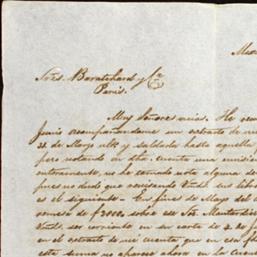 Mex
Sres. Baratchard y Ca
Paris.
Muy Señores mios. He reci
Junio acompañandome un extracto de mi
31 de Mayo ulto y saldada hasta aquella
pero notando en dha. cuenta una omision
enteramente, no he tomado nota alguna de
pues no dudo que revisando Vmds sus libros
es el siguiente - En fines de Mayo del a
remesa de f 3000. sobre ese Sor.
Vmds. ser corriente en su carta de 2 de J
en el extracto de mi cuenta que en esa f
esta suma no aparece ahora en la Cuenta